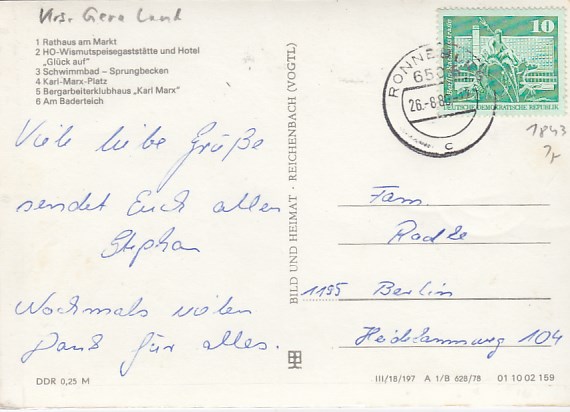 Krs. Gera Land
1 Rathaus am Markt
2 HO-Wismutspeisegaststätte und Hotel
„Glück auf"
3 Schwimmbad – Sprungbecken
4 Karl-Marx-Platz
5 Bergarbeiterklubhaus „Karl Marx"
6 Am Baderteich
Viele liebe Grüße
sendet Euch allen
Stephan
Nochmals vielen
Dank für alles.
DDR 0,25 M
BILD UND HEIMAT · REICHENBACH (VOGTL)
10
DEUTSCHE DEMOKRATISCHE REPUBLIK
RONNE
26.-8.80
c
1843
Fam.
Radke
1195 Berlin
Heidekampweg 104
III/18/197 A 1/B 628/78 01 10 02 159